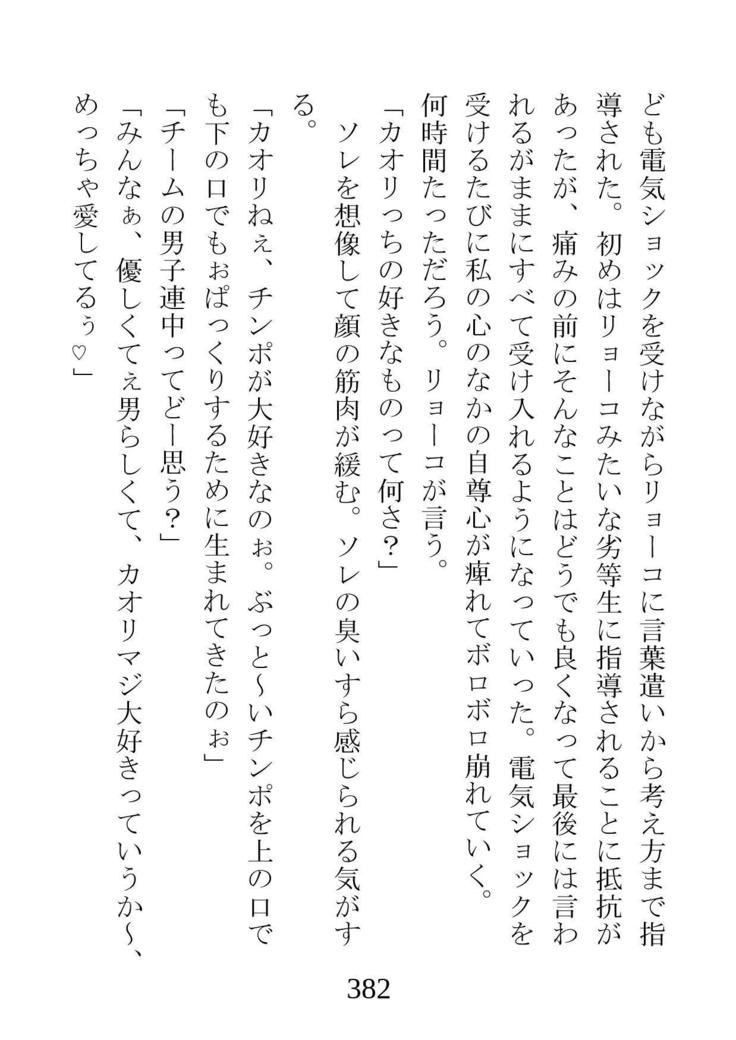 ども電気ショックを受けながらリョーコに言葉遣いから考え方まで指
導された。初めはリョーコみたいな劣等生に指導されることに抵抗が
あったが、痛みの前にそんなことはどうでも良くなって最後には言わ
れるがままにすべて受け入れるようになっていった。電気ショックを
受けるたびに私の心のなかの自尊心が痺れてボロボロ崩れていく。
何時間たっただろう。リョーコが言う。
「カオリっちの好きなものって何さ？」
　ソレを想像して顔の筋肉が緩む。ソレの臭いすら感じられる気がす
る。
「カオリねぇ、チンポが大好きなのぉ。ぶっと～いチンポを上の口で
も下の口でもぉぱっくりするために生まれてきたのぉ」
「チームの男子連中ってどー思う？」
「みんなぁ、優しくてぇ男らしくて、カオリマジ大好きっていうか～、
めっちゃ愛してるぅ♡」
382